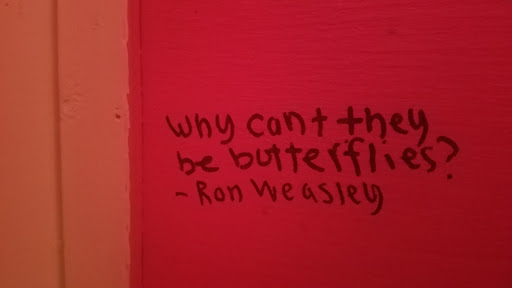 Why cant they
be butterflies?
- Ron Weasley